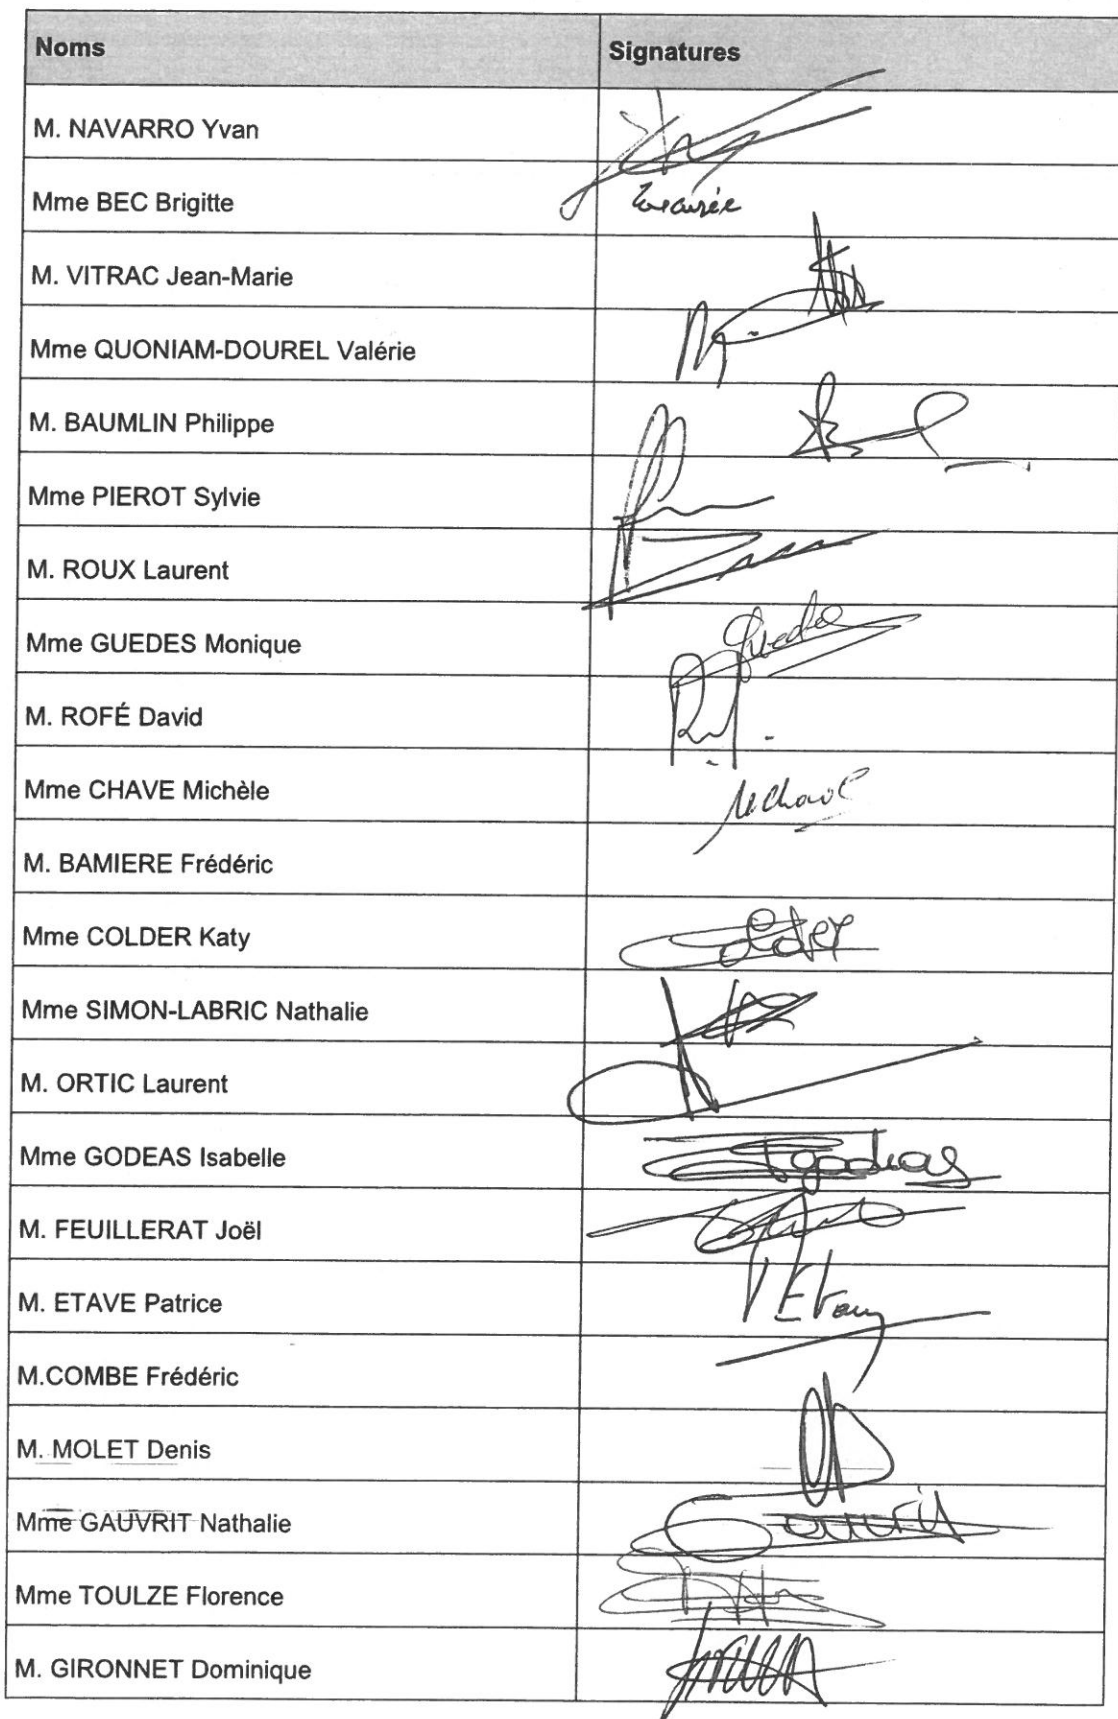 Noms Signatures
M. NAVARRO Yvan
Mme BEC Brigitte
M. VITRAC Jean-Marie
Mme QUONIAM-DOUREL Valérie
M. BAUMLIN Philippe
Mme PIEROT Sylvie
M. ROUX Laurent
Mme GUEDES Monique Guedes
M. ROFÉ David
Mme CHAVE Michèle MChave
M. BAMIERE Frédéric
Mme COLDER Katy Colder
Mme SIMON-LABRIC Nathalie
M. ORTIC Laurent
Mme GODEAS Isabelle Igodeas
M. FEUILLERAT Joël
M. ETAVE Patrice
M.COMBE Frédéric
M. MOLET Denis
Mme GAUVRIT Nathalie Gauvrit
Mme TOULZE Florence
M. GIRONNET Dominique